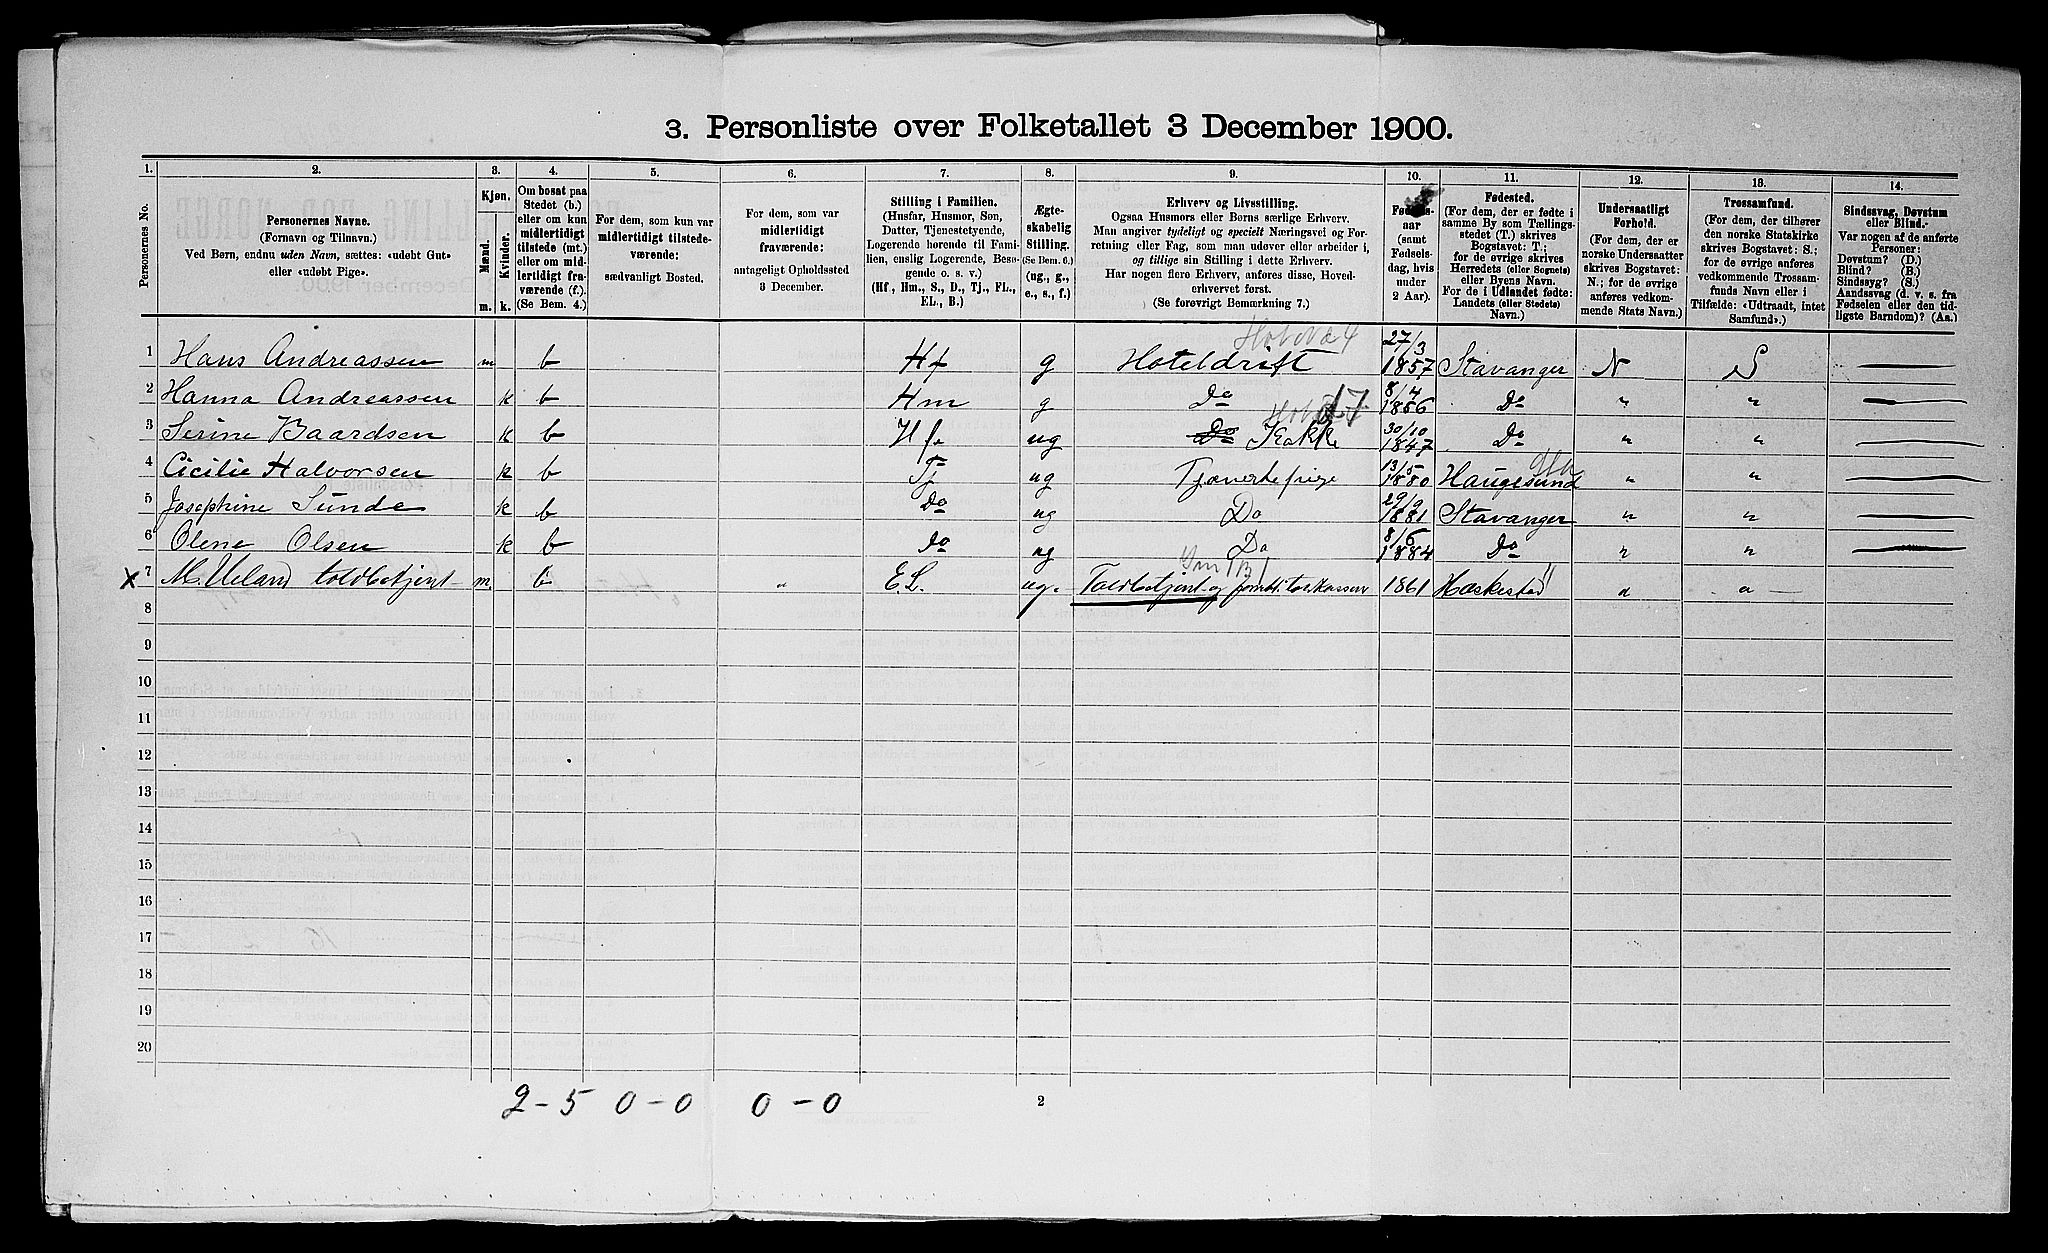 3. Personliste over Folketallet 3 December 1900.
1. 2. 3. 4. 5. 6. 7. 8. 9. 10. 11. 12. 13. 14.
Personernes No.
Personernes Navne.
(Fornavn og Tilnavn.)
Ved Børn, endnu uden Navn, sættes: «udøbt Gut»
eller «udøbt Pige».
Kjøn.
Mænd.
Kvinder.
m. k.
Om bosat paa
Stedet (b.)
eller om kun
midlertidigt
tilstede (mt.)
eller om mid-
lertidigt fra-
værende (f.).
(Se Bem. 4.)
For dem, som kun var
midlertidigt tilstede-
værende:
sædvanligt Bosted.
For dem, som var
midlertidigt
fraværende:
antageligt Opholdssted
3 December.
Stilling i Familien.
(Husfar, Husmor, Søn,
Datter, Tjenestetyende,
Logerende hørende til Fami-
lien, enslig Logerende, Besø-
gende o. s. v.)
(Hf, Hm., S., D., Tj., FL.,
EL., B.)
Ægte-
skabelig
Stilling.
(Se Bem. 6.)
(ug., g.,
e., s., f.)
Erhverv og Livsstilling.
Ogsaa Husmors eller Børns særlige Erhverv.
Man angiver tydeligt og specielt Næringsvei og For-
retning eller Fag, som man udøver eller arbeider i,
og tillige sin Stilling i dette Erhverv.
Har nogen flere Erhverv, anføres disse, Hoved-
erhvervet først.
(Se forøvrigt Bemærkning 7.)
Fødsels-
aar
(samt
Fødsels-
dag, hvis
under
2 Aar).
Fødested.
(For dem, der er fødte i
samme By som Tællings-
stedet (T.) skrives
Bogstavet: T.;
for de øvrige skrives
Herredets (eller Sognets)
eller Byens Navn.
For de i Udlandet fødte:
Landets (eller Stedets)
Navn.)
Undersaatligt
Forhold.
(For dem, der er
norske Undersaatter
skrives Bogstavet:
N.; for de øvrige
anføres vedkom-
mende Stats Navn.)
Trossamfund.
(For dem, der tilhører
den norske Statskirke
skrives Bogstavet: S.;
for de øvrige anføres
vedkommende Trossam-
funds Navn eller i
Tilfælde: «Udtraadt, intet
Samfund».)
Sindssvag, Døvstum
eller Blind.
Var nogen af de anførte
Personer:
Døvstum? (D.)
Blind? (B.)
Sindssyg? (S.)
Aandssvag (d. v. s. fra
Fødselen eller den tid-
ligste Barndom)? (Aa.)
1 Hans Andreassen m b Hf g Hoteldrift 27/3 1857 Stavanger N S
2 Hanna Andreassen k b Hm g Do 8/4 1856 Do " "
3 Serine Baardsen k b ug Do Kokke 30/10 1847 Do " "
4 Cicilie Halvorsen k b Tj ug Tjenestepige 13/5 1880 Haugesund " "
5 Josephine Sunde k b do ug Do 1881 Stavanger " "
6 Olene Olsen k b do ug Do 8/6 1884 Do " "
x 7 M. Ueland toldbetjent m. b " E.L. ug. Toldbetjent og 1861 Heskestad " "
8
9
10
11
12
13
14
15
16
17
18
19
20
2 - 5 0 - 0 0 - 0
2